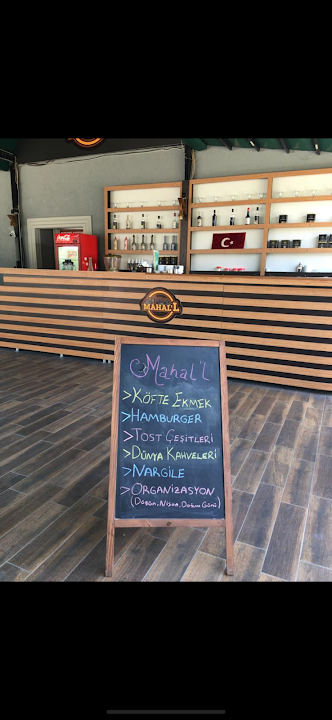 Coca-Cola
MAHAL'L
Mahal'l
>KÖFTE EKMEK
>HAMBURGER
>TOST ÇEŞİTLERİ
>DÜNYA KAHVELERİ
>NARGİLE
>ORGANİZASYON
(Düğün, Nişan, Doğum Günü)